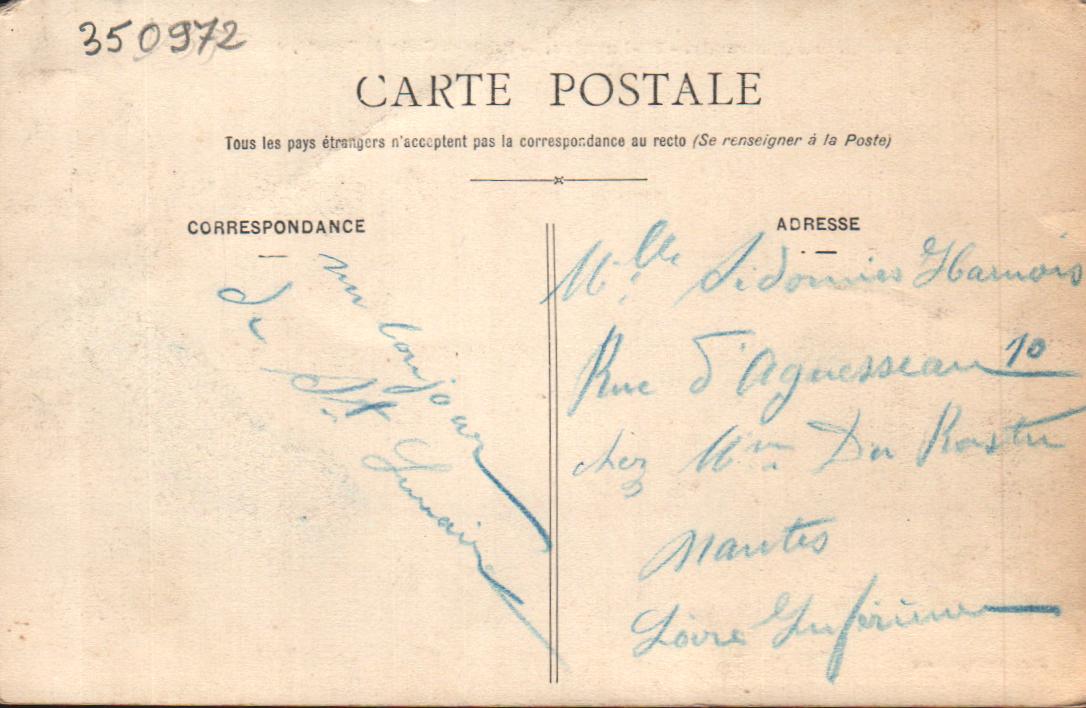 350972
CARTE POSTALE
Tous les pays étrangers n'acceptent pas la correspondance au recto (Se renseigner à la Poste)
CORRESPONDANCE
un bonjour
De
St
ADRESSE
Mlle Sidonnies Harnois
Rue d'Aguesseau 10
chez Mm Du Rostu
Nantes
Loire Inférieure